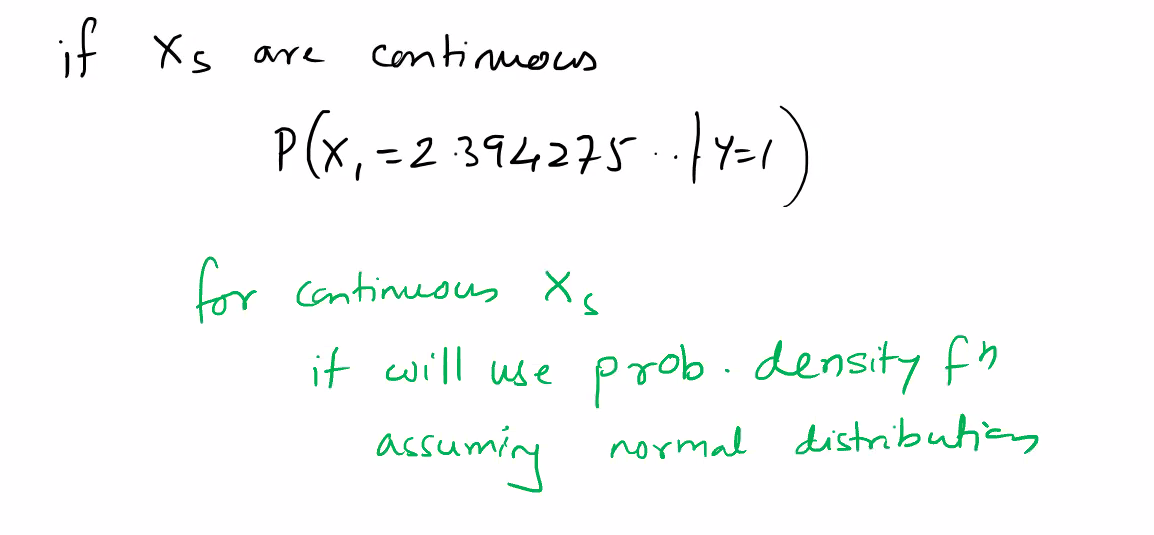 if Xs are continuous
P(X₁=2.394275...|Y=1)
for continuous Xs
it will use prob. density fn
assuming normal distribution